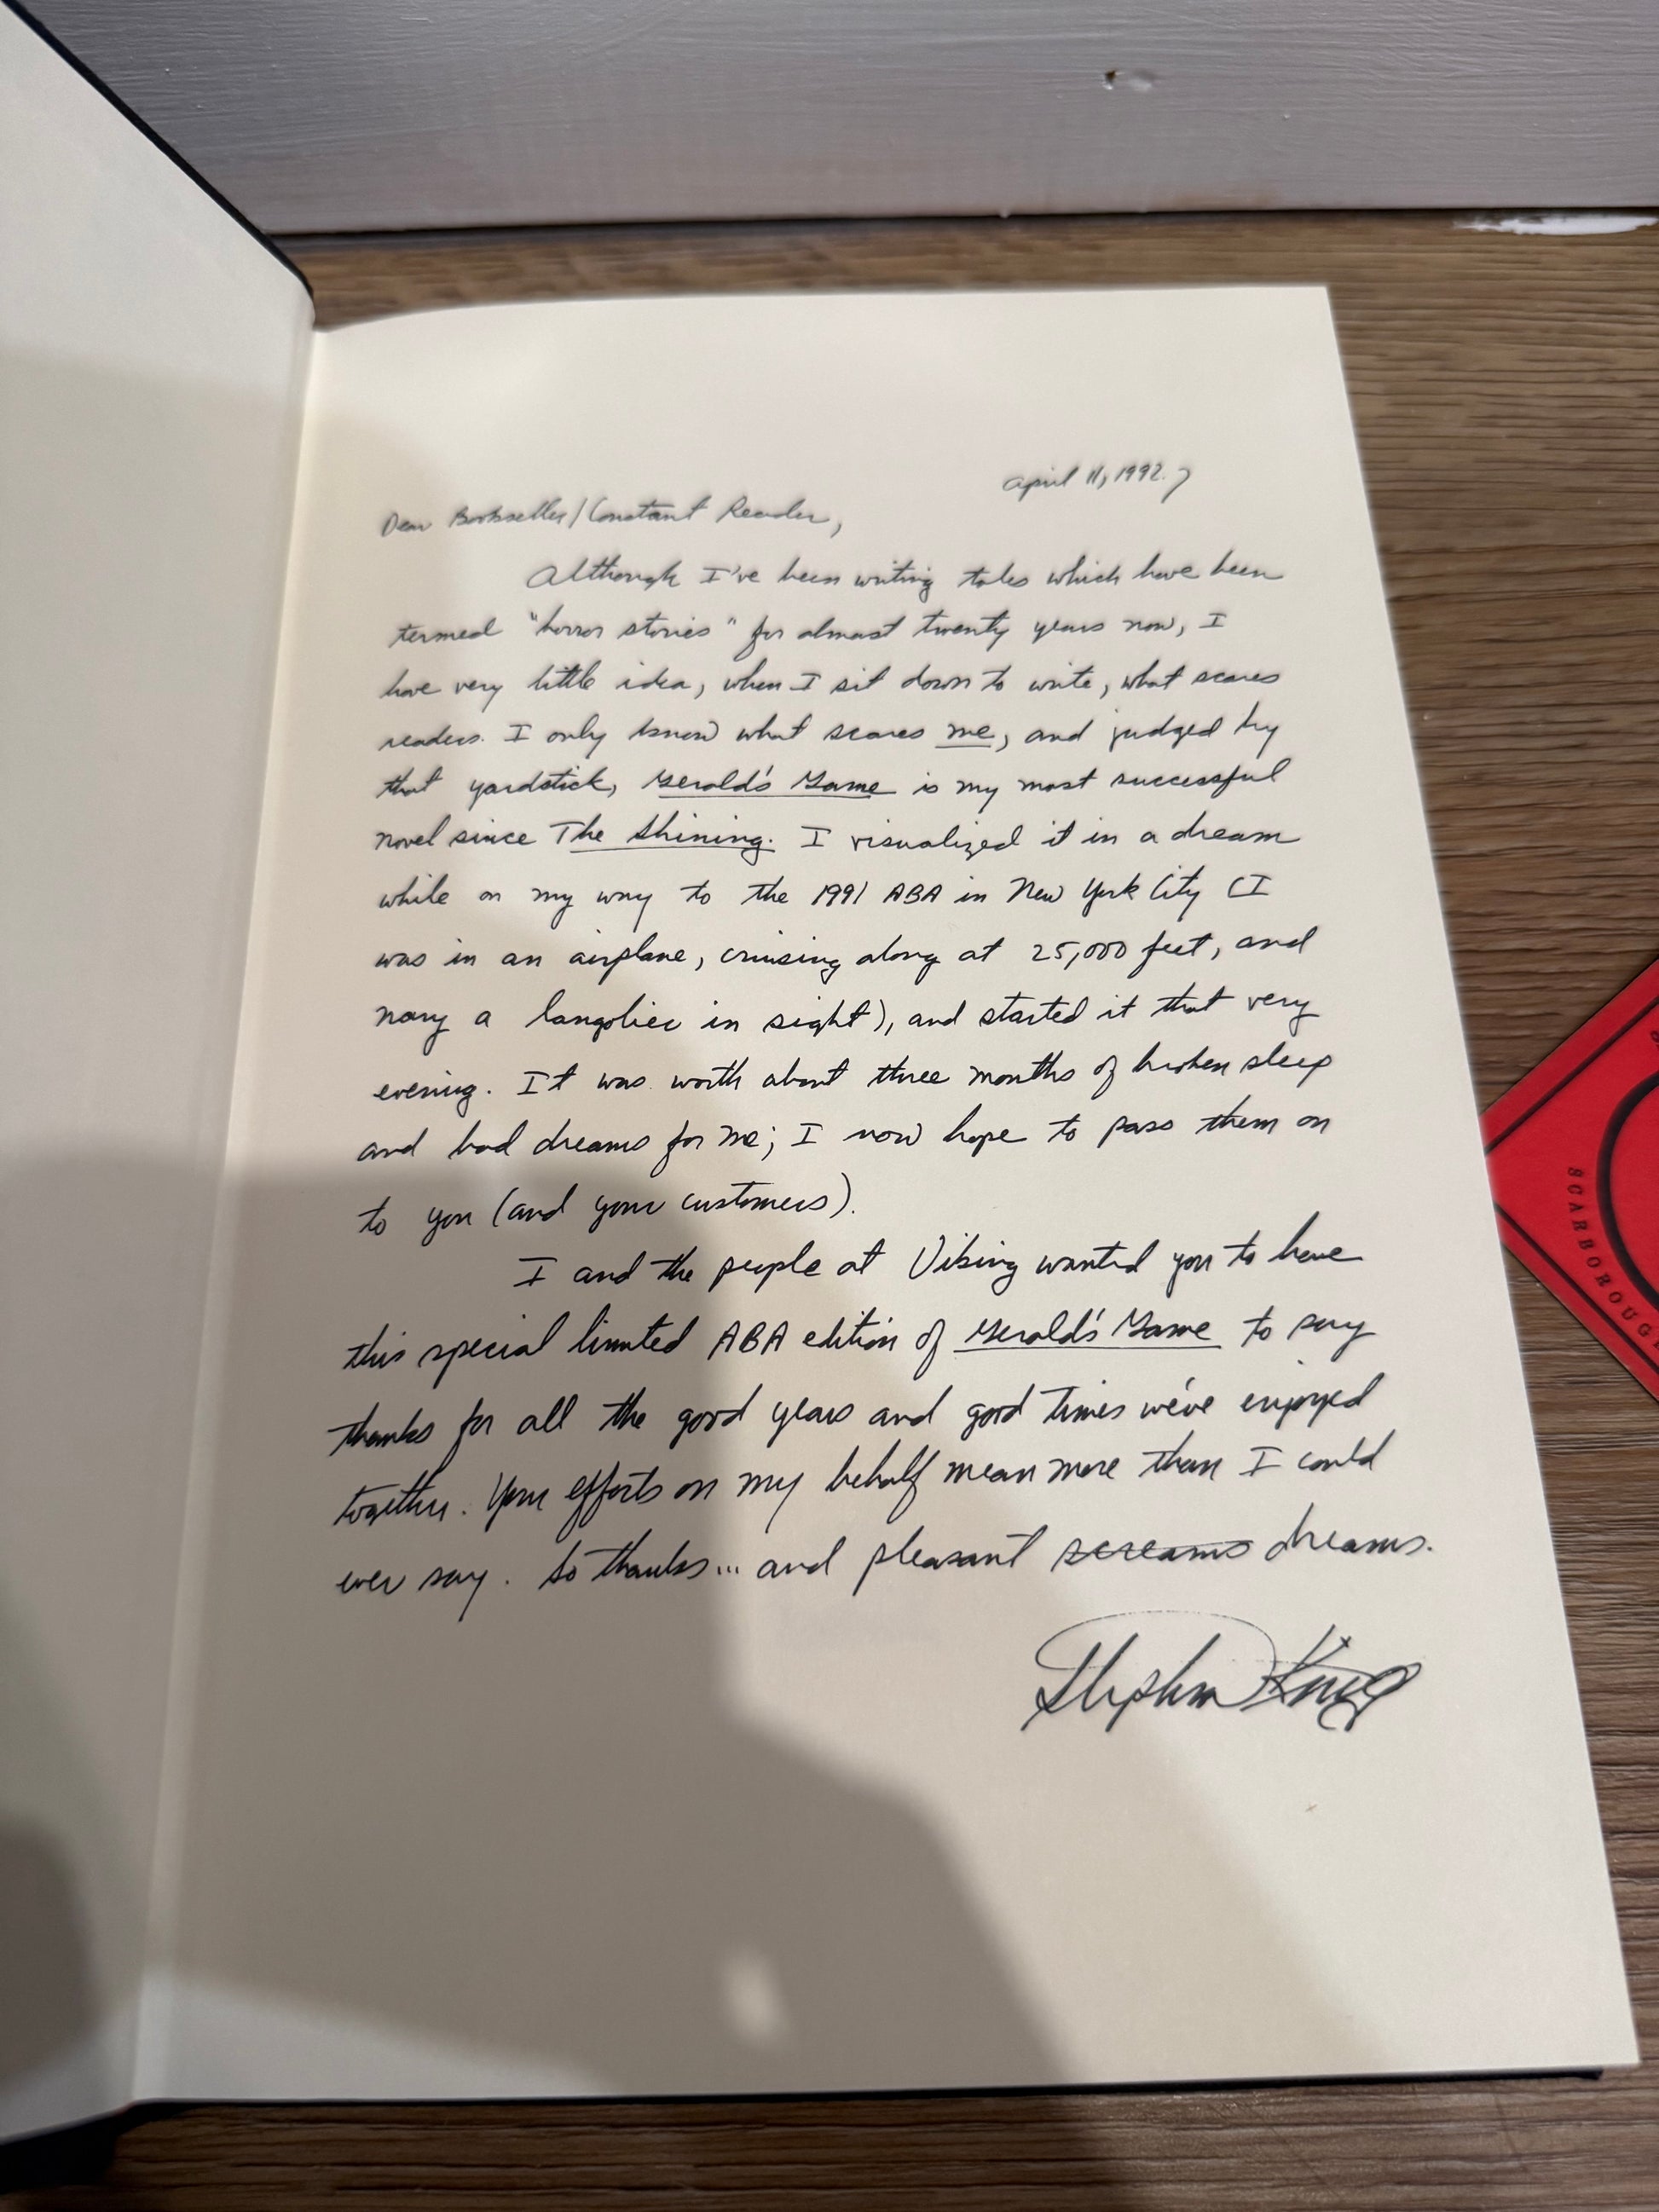 April 11, 1992
Dear Bookseller/Constant Reader,
Although I've been writing tales which have been
termed "horror stories" for almost twenty years now, I
have very little idea, when I sit down to write, what scares
readers. I only know what scares me, and judged by
that yardstick, Gerald's Game is my most successful
novel since The Shining. I visualized it in a dream
while on my way to the 1991 ABA in New York City (I
was in an airplane, cruising along at 25,000 feet, and
nary a langolier in sight), and started it that very
evening. It was worth about three months of broken sleep
and bad dreams for me; I now hope to pass them on
to you (and your customers).
I and the people at Viking wanted you to have
this special limited ABA edition of Gerald's Game to say
thanks for all the good years and good times we've enjoyed
together. Your efforts on my behalf mean more than I could
ever say. So thanks... and pleasant screams dreams.
Stephen King
SCARBOROUG